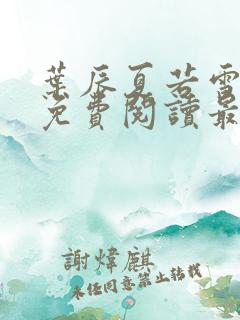 葉辰夏若雪
免費閱讀最
謝煒麒
未經同意禁止轉載